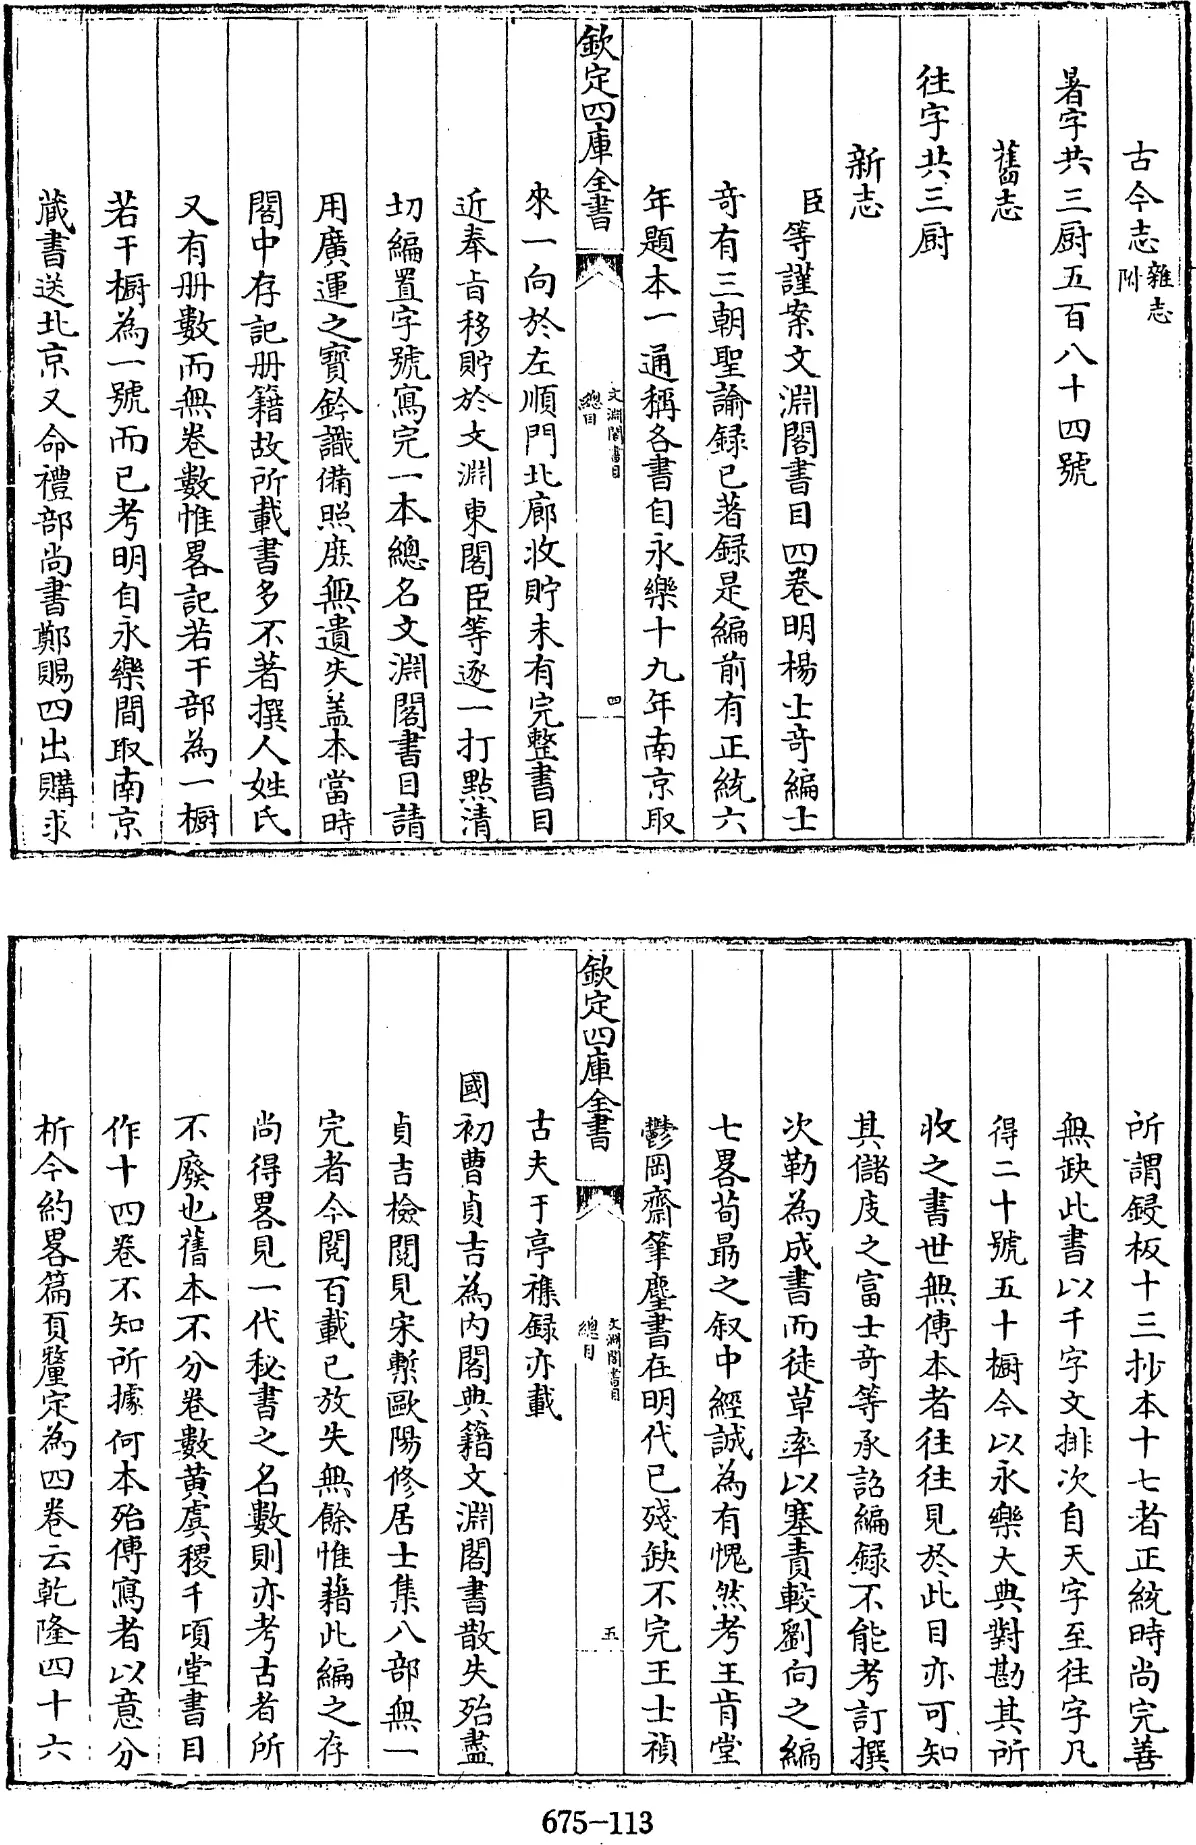 古今志雜志附
暑字共三厨五百八十四號
舊志
往字共三厨
新志
臣等謹案文淵閣書目四卷明楊士竒編士
竒有三朝聖諭録已著録是編前有正統六
年題本一通稱各書自永樂十九年南京取
欽定四庫全書
文淵閣書目
總目
四
來一向於左順門北廊收貯未有完整書目
近奉㫖移貯於文淵東閣臣等逐一打點清
切編置字號寫完一本總名文淵閣書目請
用廣運之寳鈐識備照庶無遺失盖本當時
閣中存記册籍故所載書多不著撰人姓氏
又有册數而無卷數惟畧記若干部為一橱
若干橱為一號而已考明自永樂間取南京
藏書送北京又命禮部尚書鄭賜四出購求
所謂鋟板十三抄本十七者正統時尚完善
無缺此書以千字文排次自天字至往字凡
得二十號五十橱今以永樂大典對勘其所
收之書世無傳本者往往見於此目亦可知
其儲庋之富士竒等承詔編録不能考訂撰
次勒為成書而徒草率以塞責較劉向之編
七畧荀勗之叙中經誠為有愧然考王肯堂
鬱岡齋筆麈書在明代已殘缺不完王士禎
欽定四庫全書
文淵閣書目
總目
五
古夫于亭襍録亦載
國初曹貞吉為内閣典籍文淵閣書散失殆盡
貞吉檢閲見宋槧歐陽修居士集八部無一
完者今閲百載已放失無餘惟藉此編之存
尚得畧見一代秘書之名數則亦考古者所
不廢也舊本不分卷數黄虞稷千頃堂書目
作十四卷不知所據何本殆傳寫者以意分
析今約畧篇頁釐定為四卷云乾隆四十六
675-113